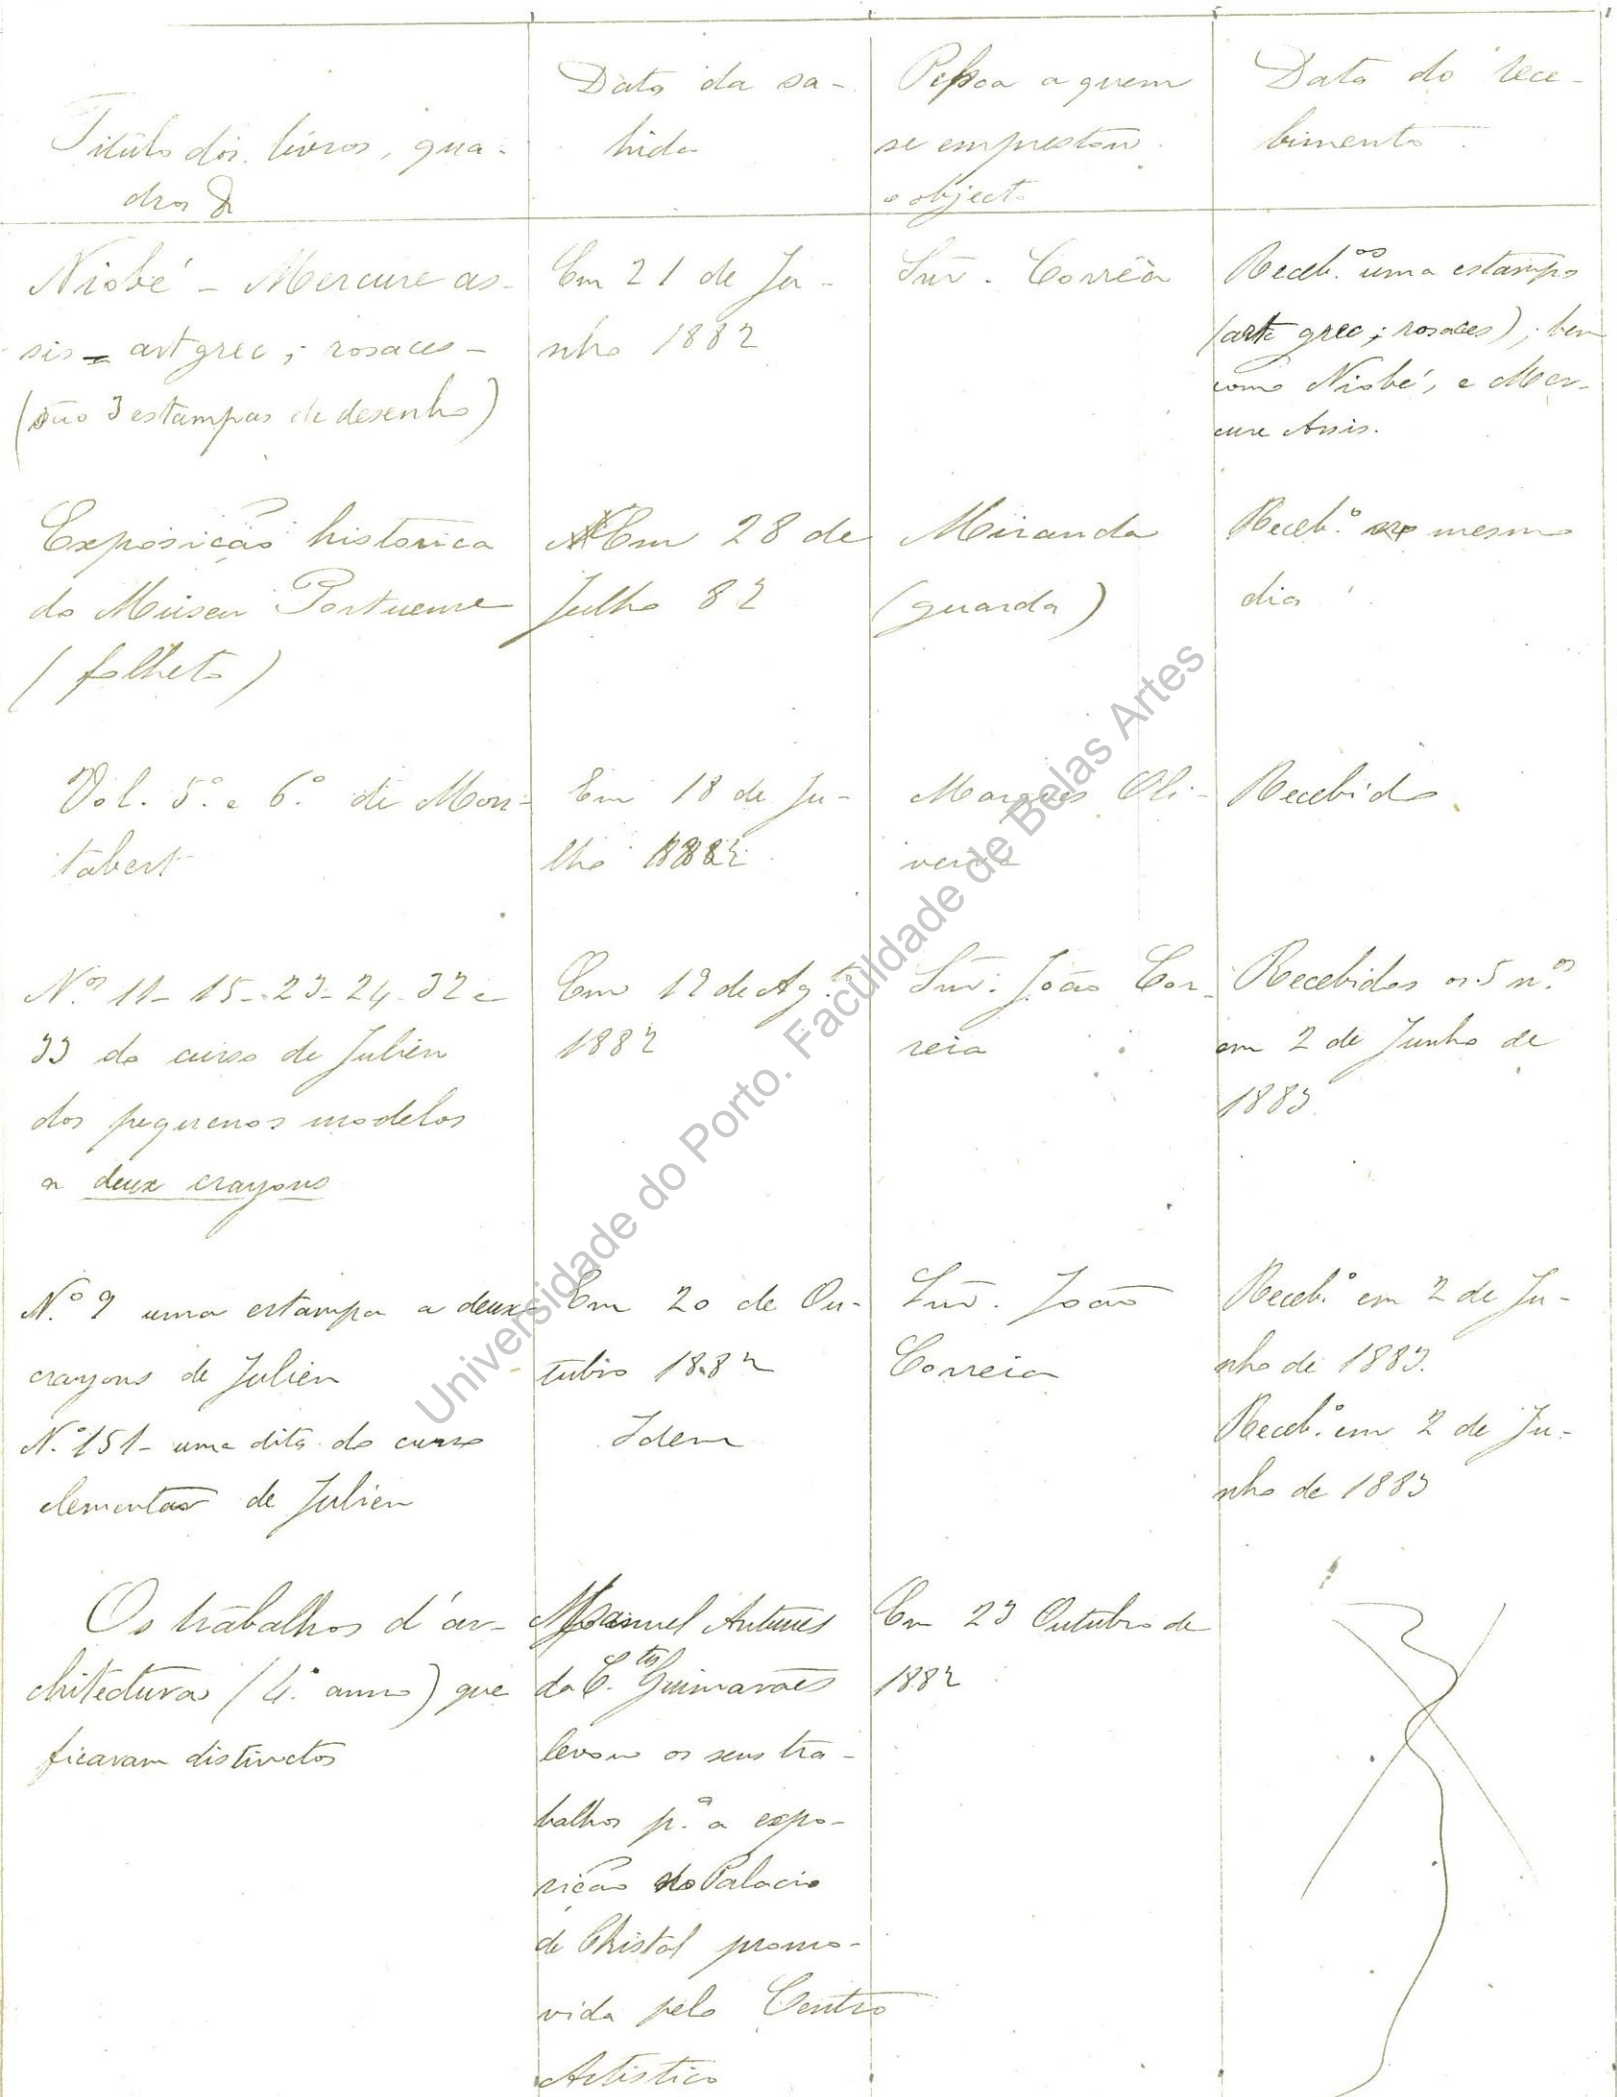 Titulo dos livros, qua-
dros &
Data da sa-
hida
Pessoa a quem
se emprestou
o objecto
Data do rece-
bimento
Niobé - Mercure as-
sis - art grec; rosaces -
(são 3 estampas de desenho)
Em 21 de Ju-
nho 1882
Snr. Corrêa
Receb.os uma estampa
(art grec; rosaces); bem
como Niobé, e Mer-
cure Assis.
Exposição historica
do Museu Portuense
(folheto)
Em 28 de
Julho 82
Miranda
(guarda)
Receb.º no mesmo
dia
Vol. 5.º e 6.º de Mon-
tabert
Em 18 de Ju-
lho 1882
Marques Oli-
veira
Recebido
N.os 11 - 15 - 23 - 24 - 32 e
33 do curso de Julien
dos pequenos modelos
a deux crayons
Em 12 de Ag.to
1882
Snr. João Cor-
reia
Recebidos os 5 n.os
em 2 de Junho de
1883
N.º 9 uma estampa a deux
crayons de Julien
Em 20 de Ou-
tubro 1882
Snr. João
Correia
Receb.º em 2 de Ju-
nho de 1883.
N.º 151 - uma dita do curso
elementar de Julien
Idem
Receb.º em 2 de Ju-
nho de 1883
Os trabalhos d'ar-
chitectura (4.º anno) que
ficaram distinctos
Manuel Antunes
da C.ta Guimarães
levou os seus tra-
balhos p.a a expo-
sição do Palacio
de Christal promo-
vida pelo Centro
Artistico
Em 23 Outubro de
1882
Universidade do Porto. Faculdade de Belas Artes